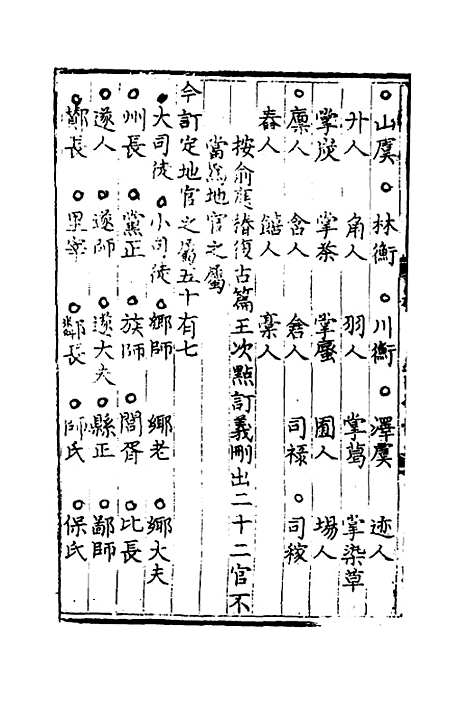 ○山虞　○林衡　○川衡　○澤虞　迹人
卝人　角人　羽人　掌葛　掌染草
掌炭　掌荼　掌蜃　囿人　場人
○廩人　舍人　倉人　司祿　○司稼
舂人　饎人　稾人
按俞庭椿復古篇王次點訂義刪出二十二官不
當爲地官之屬
今訂定地官之屬五十有七
○大司徒　○小司徒　○鄉師　鄉老　○鄉大夫
○州長　○黨正　○族師　○閭胥　○比長
○遂人　○遂師　○遂大夫　○縣正　○鄙師
○酇長　○里宰　○鄰長　○師氏　○保氏